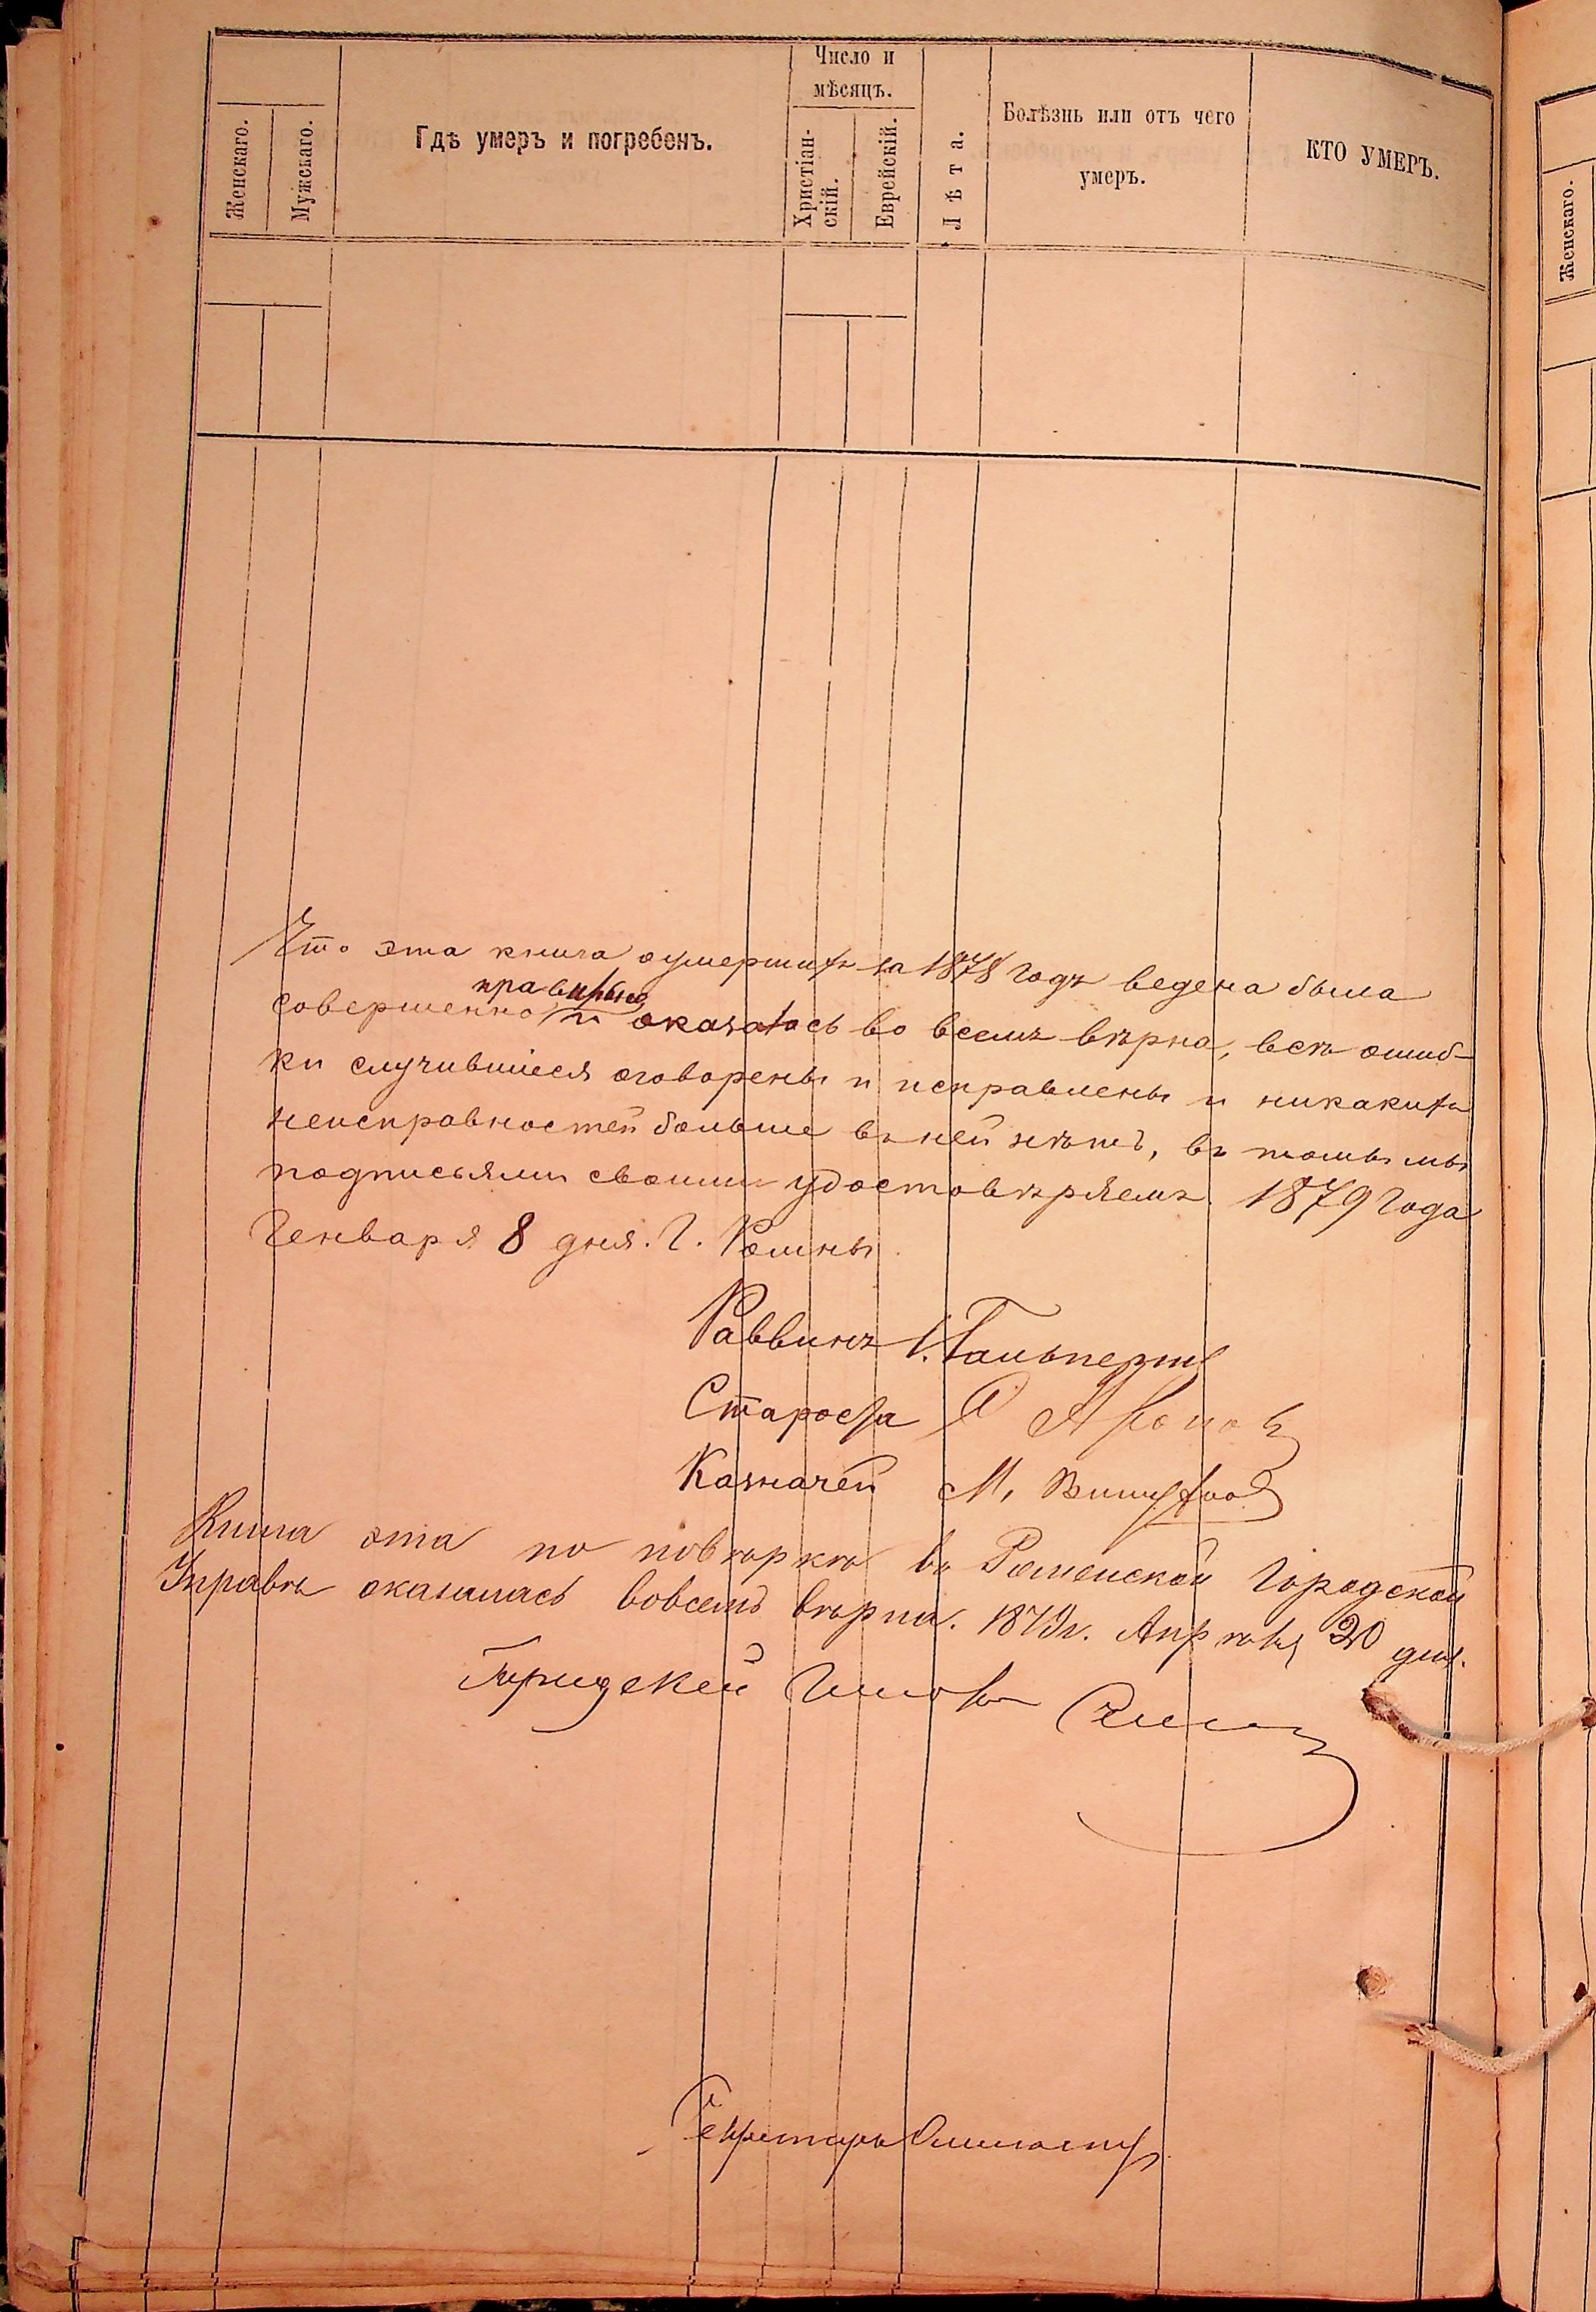 Число и
мѣсяцъ.
Женскаго.
Мужскаго.
Гдѣ умеръ и погребенъ.
Христіан-
скій.
Еврейскій.
Лѣта.
Болѣзнь или отъ чего
умеръ.
КТО УМЕРЪ.
Женскаго.
Что эта книга о умершихъ за 1878 годъ ведена была
правильно
совершенно и оказалась во всемъ вѣрна, всѣ ошиб-
ки случившіеся оговорены и исправлены и никакихъ
неисправностей больше въ ней нѣтъ, въ томъ мы
подписьями своими удостовѣряемъ. 1879 года
Генваря 8 дня. Г. Ромны.
Раввинъ Гальперинъ
Староста
Казначей М.
Книга эта по повѣркѣ въ Роменской Городской
Управѣ оказалась вовсемъ вѣрна. 1879 г. Апрѣля 20 дня.
Городской Голова
Секретарь